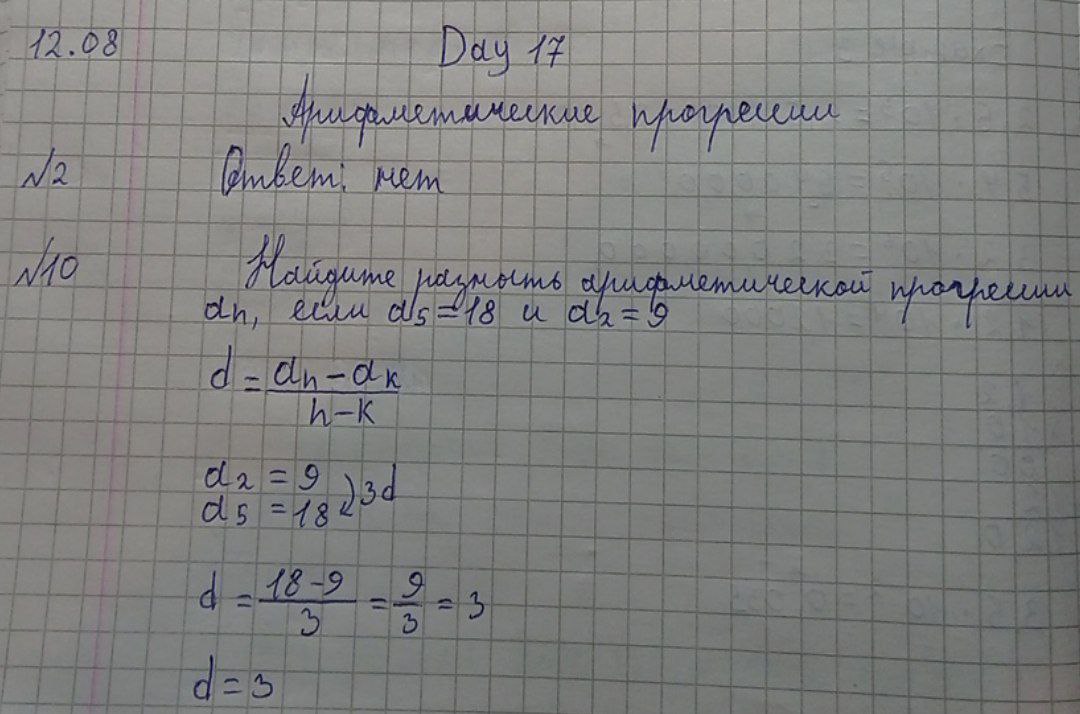 12.08
Day 17
Арифметические прогрессии
№2 Ответ: нет
№10 Найдите разность арифметической прогрессии
an, если a5=18 и a2=9
d = (an - ak) / (n - k)
a2 = 9
a5 = 18 3d
d = (18-9) / 3 = 9/3 = 3
d = 3